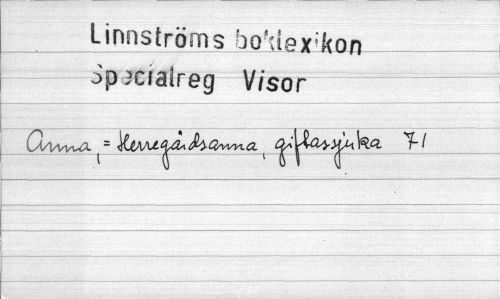 Linnströms boklexikon
Specialreg Visor
Anna, = Herregårdsanna, giftassjuka 71